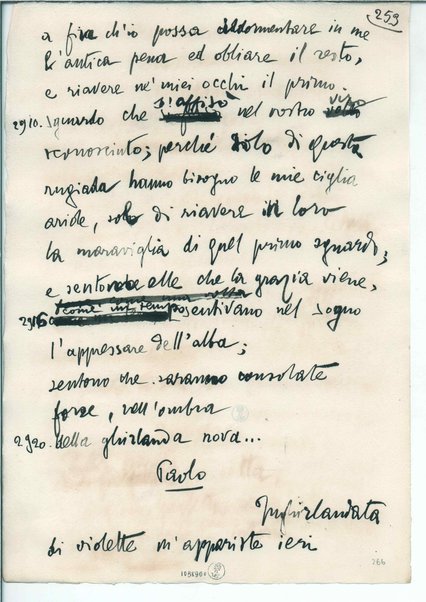 259
a fin ch'io possa addormentare in me
l'antica pena ed obliare il resto,
e riavere ne' miei occhi il primo
2910. sguardo che s'affisò nel vostro viso
sconosciuto; perché solo di questa
rugiada hanno bisogno le mie ciglia
aride, solo di riavere in loro
la maraviglia di quel primo sguardo;
e sentono elle che la grazia viene,
2916 sentivano nel sogno
l'appressare dell'alba;
sentono che saranno consolate
forse, nell'ombra
2920. della ghirlanda nova...
Paolo
Inghirlandata
di violette m'appariste ieri
1058901
266